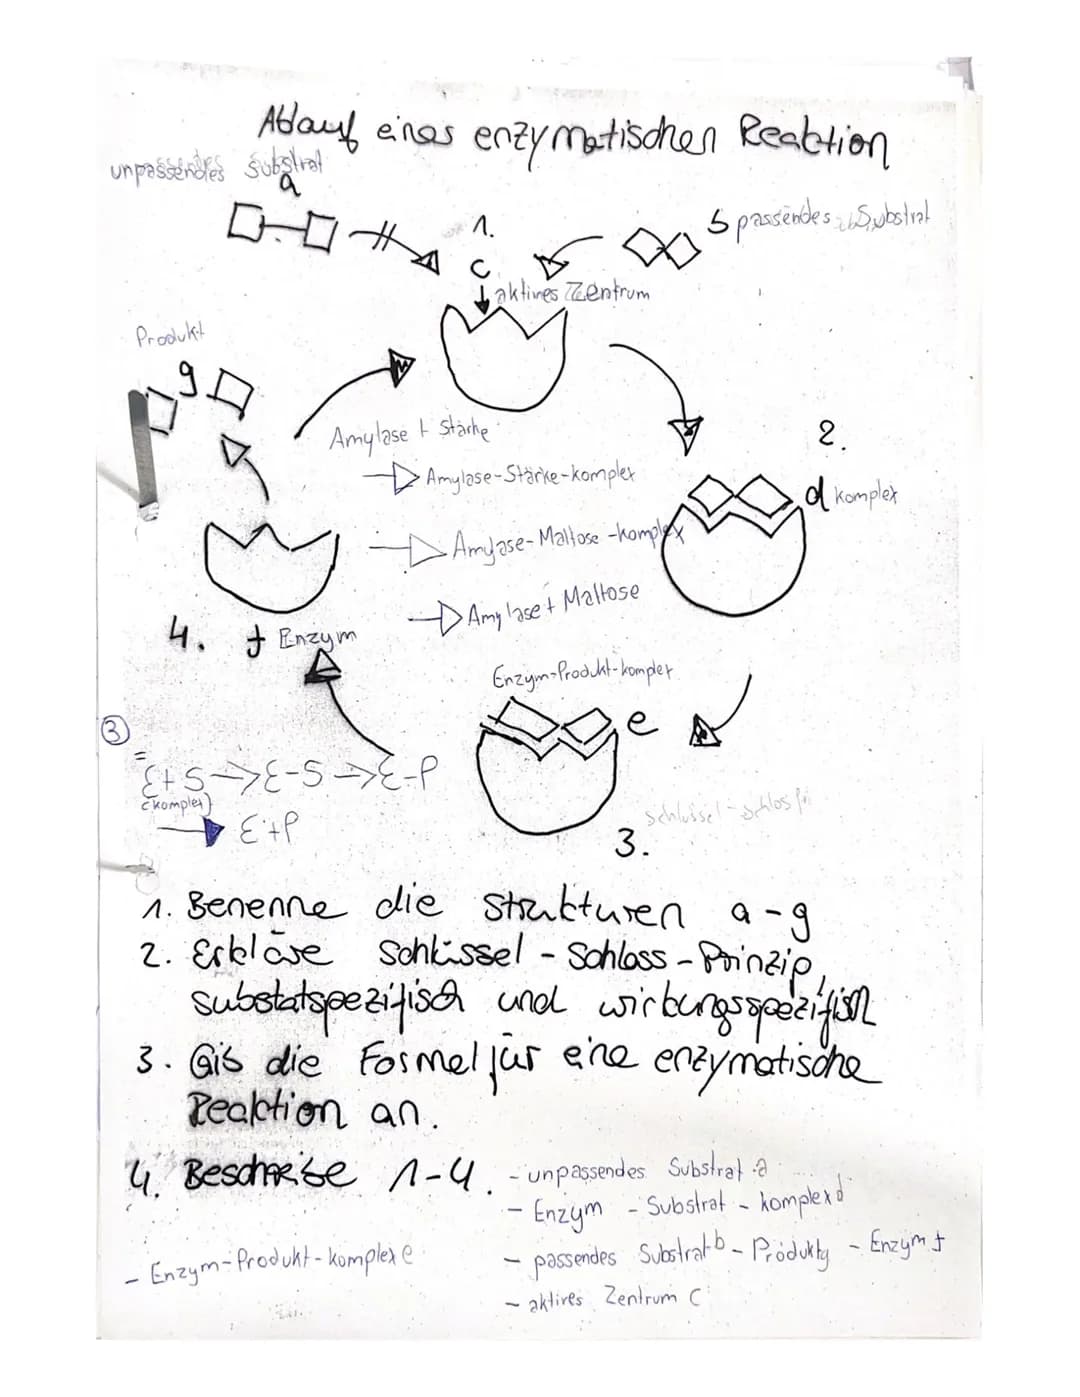 Ablauf einer enzymatischen Reaktion
unpassendes Substrat
a
1.
b passendes Substrat
c
aktives Zentrum
Produkt
g
Amylase + Stärke
2.
Amylase-Stärke-komplex
d komplex
Amylase-Maltose-komplex
Amylase + Maltose
4. f Enzym
Enzym-Produkt-komplex
e
3
E+S → E-S → E-P
(komplex)
→ E+P
3.
1. Benenne die Strukturen a-g
2. Erkläre Schlüssel-Schloss-Prinzip,
substatspezifisch und wirkungsspezifisch
3. Gib die Formel für eine enzymatische
Reaktion an.
4. Beschreibe 1-4.
- unpassendes Substrat a
- Enzym - Substrat - komplex d
- passendes Substrat b - Produkt g - Enzym f
- Enzym-Produkt-komplex e
- aktives Zentrum c